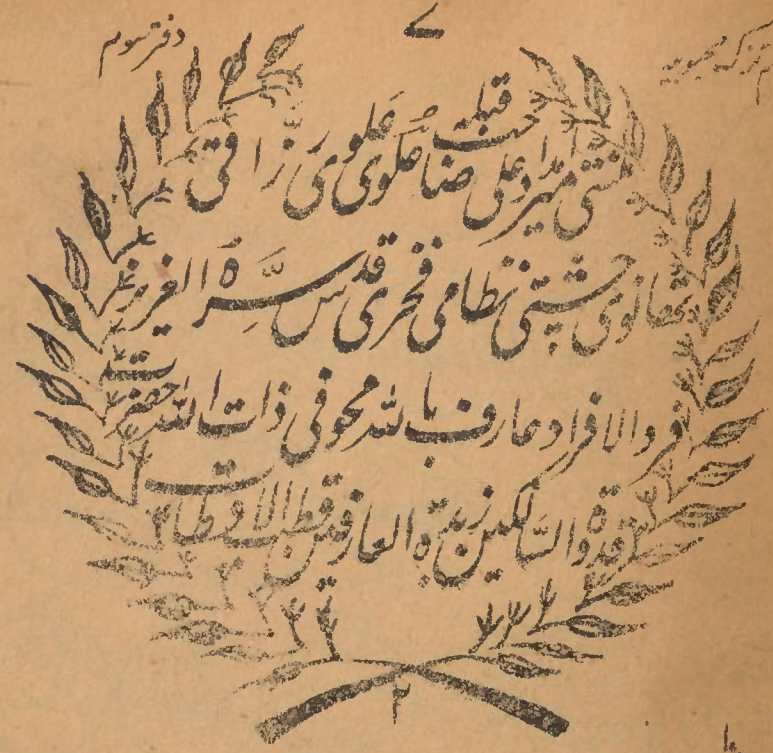 دفتر سوم
منشی میر امداد علی صاحب قبلہ علوی رزاقی
تھانوی چشتی نظامی فخری قدس سرہ العزیز
فرد الافراد عارف باللہ محو فی ذات اللہ حضرت
قدوة السالکین زبدۃ العارفین قطب الاقطاب
۲